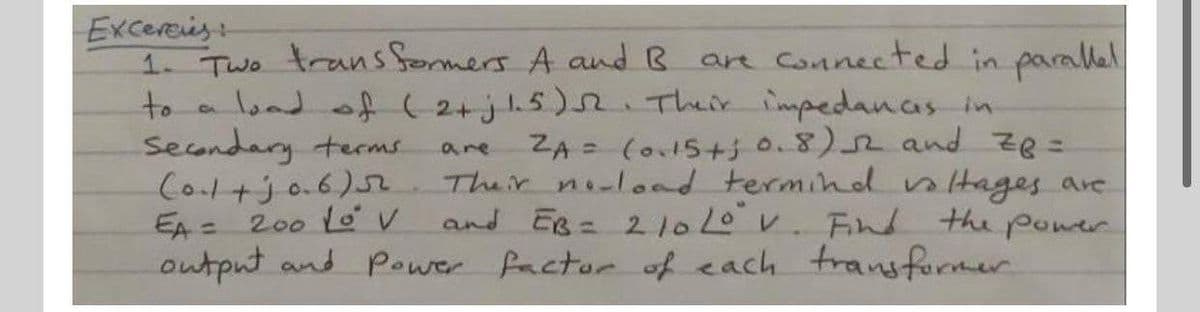 Excercies:
1. Two transformers A and B are connected in parallel
to a load of (2+j1.5)Ω. Their impedances in
Secondary terms are ZA = (0.15+j0.8)Ω and ZB =
(0.1+j0.6)Ω. Their no-load terminal voltages are
EA = 200∠0° V and EB = 210∠0° V. Find the power
output and power factor of each transformer